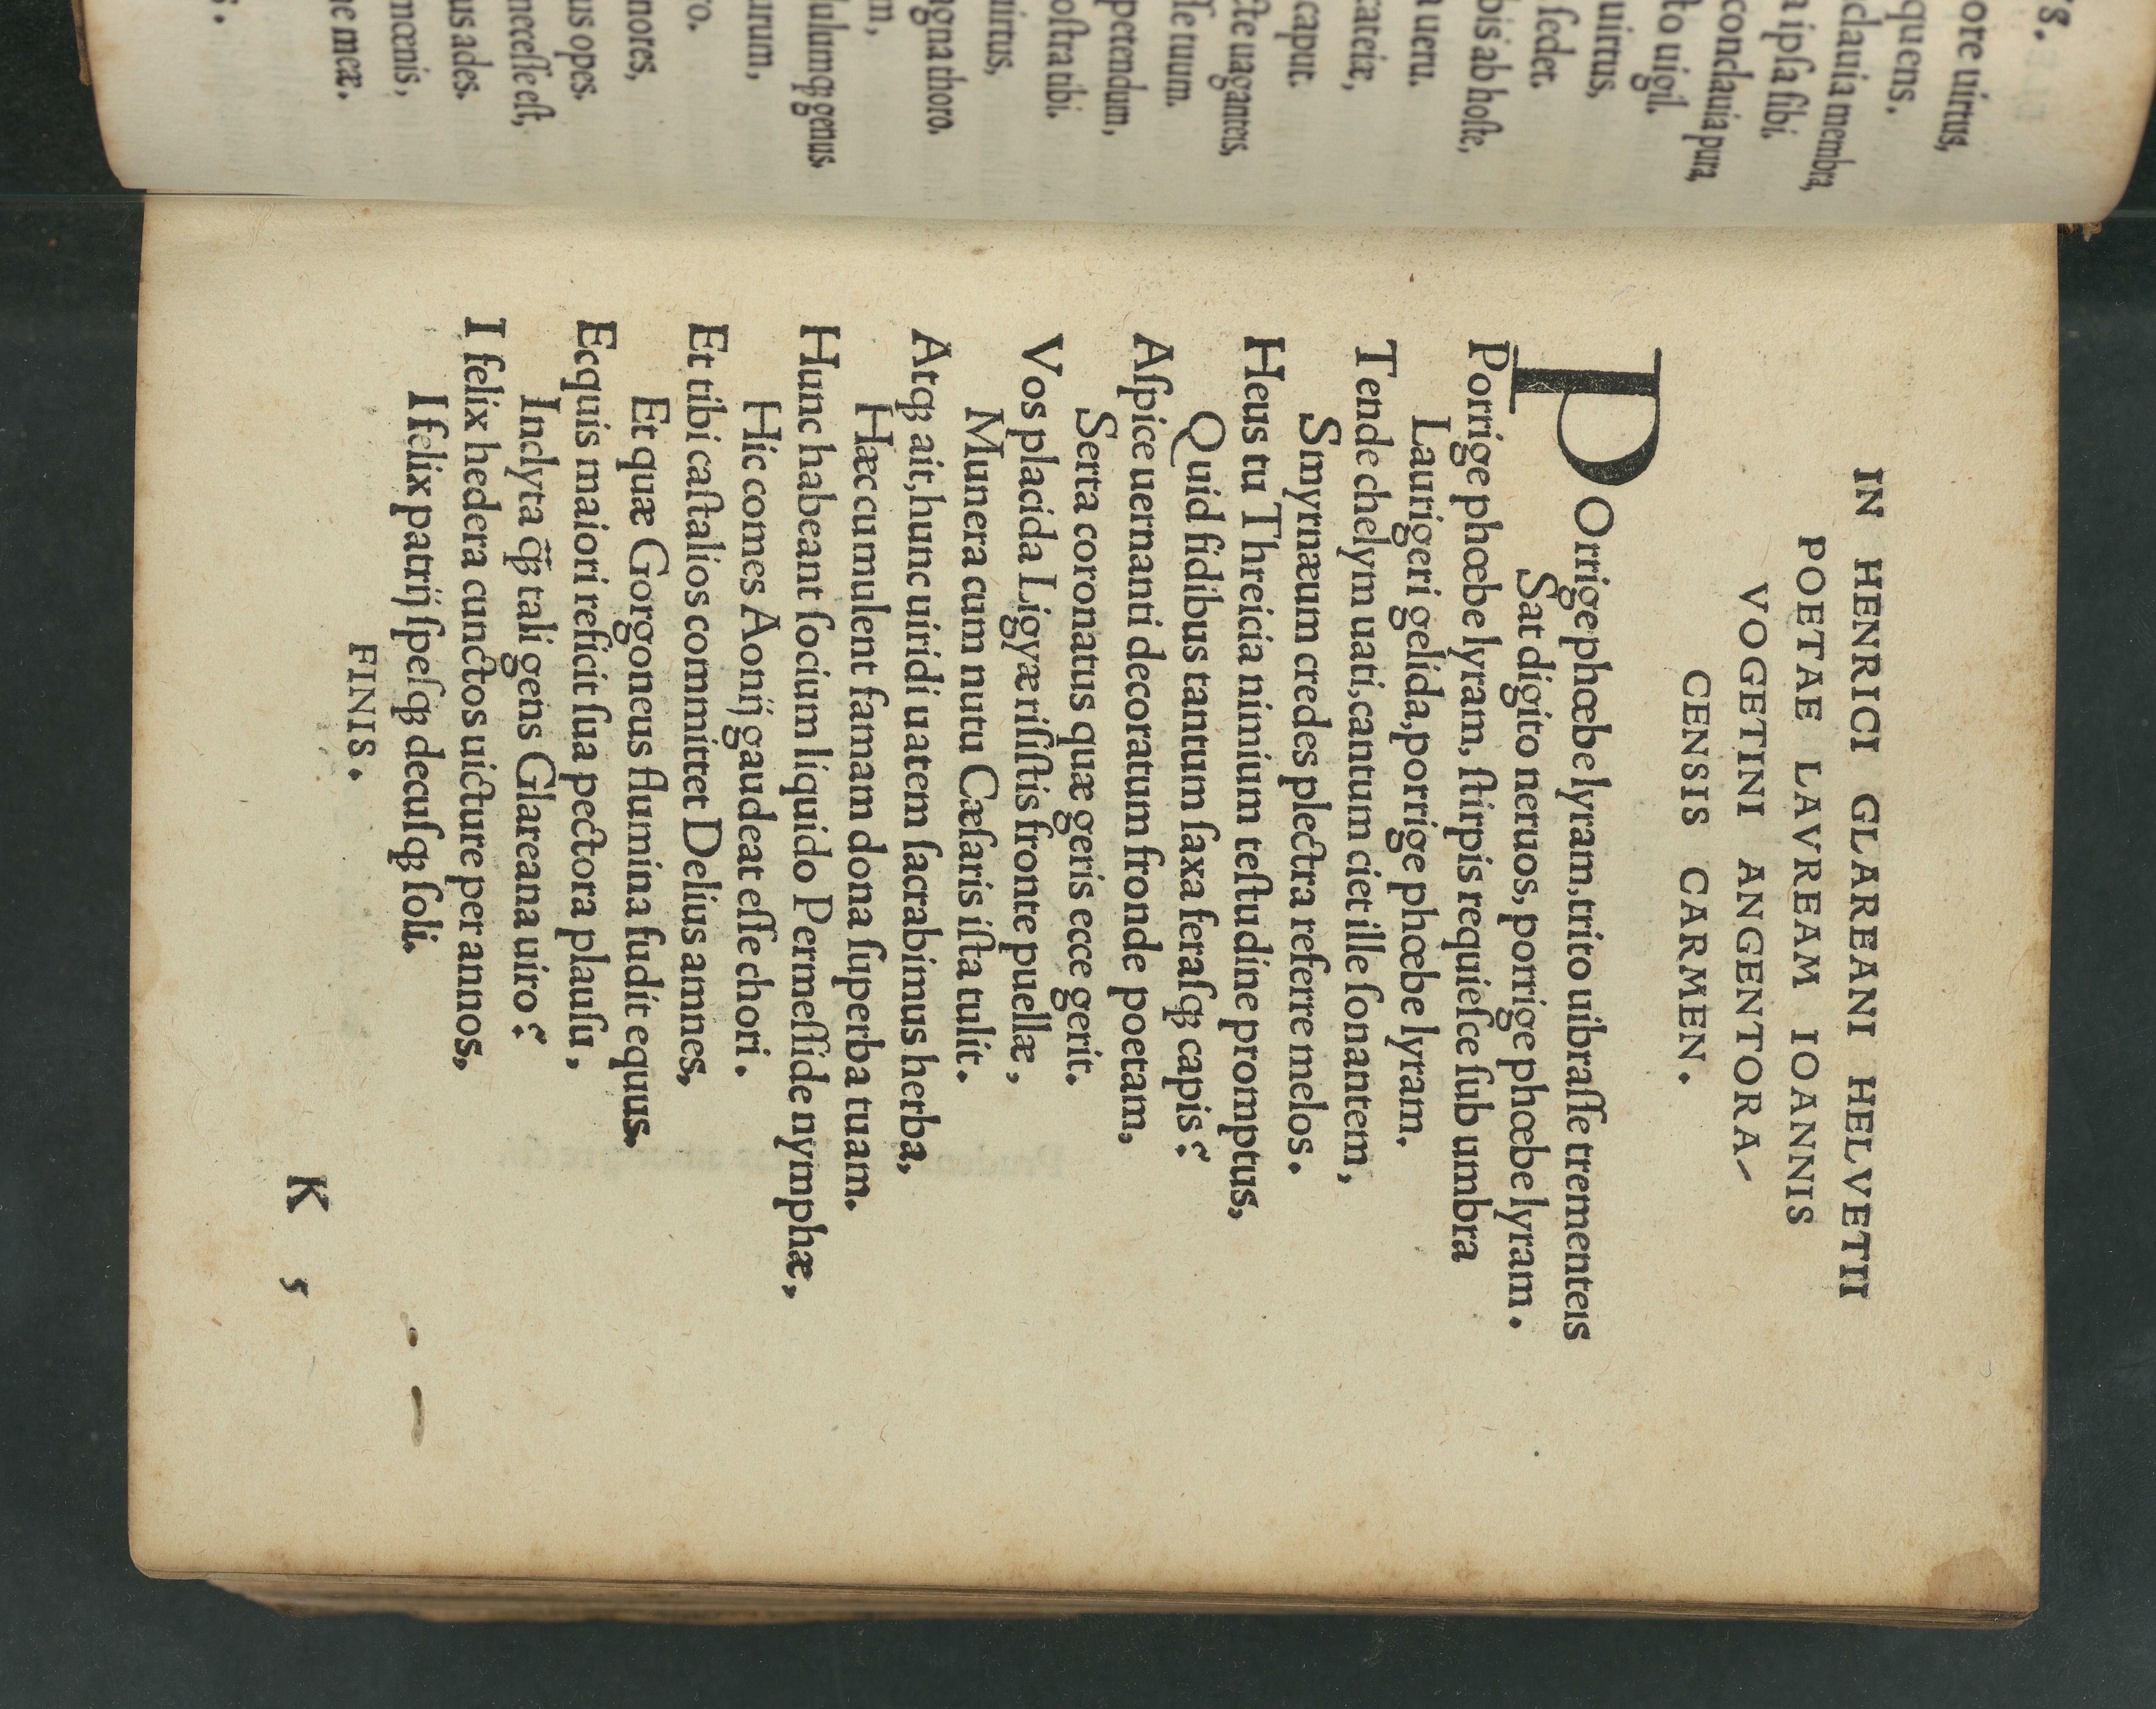 IN HENRICI GLAREANI HELVETII
POETAE LAVREAM IOANNIS
VOGETINI ANGENTORA-
CENSIS CARMEN.
POrrige phœbe lyram, trito uibraſſe trementeis
Sat digito neruos, porrige phœbe lyram.
Porrige phœbe lyram, ſtirpis requieſce ſub umbra
Laurigeri gelida, porrige phœbe lyram.
Tende chelym uati, cantum ciet ille ſonantem,
Smyrnæum credes plectra referre melos.
Heus tu Threicia nimium teſtudine promptus,
Quid fidibus tantum ſaxa feraſqꝫ capis?
Aſpice uernanti decoratum fronde poetam,
Serta coronatus quæ geris ecce gerit.
Vos placida Ligyæ riſiſtis fronte puellæ,
Munera cum nutu Cæſaris iſta tulit.
Atqꝫ ait, hunc uiridi uatem ſacrabimus herba,
Hæc cumulent famam dona ſuperba tuam.
Hunc habeant ſocium liquido Permeſſide nymphæ,
Hic comes Aonij gaudeat eſſe chori.
Et tibi caſtalios committet Delius amnes,
Et quæ Gorgoneus flumina fudit equus.
Ecquis maiori reficit ſua pectora plauſu,
Inclyta q̄ꝫ tali gens Glareana uiro?
I felix hedera cunctos uicture per annos,
I felix patrij ſpeſqꝫ decuſqꝫ ſoli.
FINIS.
K 5
ore uirtus,
quens.
clauia membra,
ipſa ſibi.
conclauia pura,
to uigil.
uirtus,
ſedet.
bis ab hoſte,
ueru.
cateiæ,
caput.
cte uaganteis,
le tuum.
petendum,
oſtra tibi.
uirtus,
igna thoro.
m,
lulumqꝫ genus.
arum,
ro.
nores,
us opes.
neceſſe eſt,
us ades.
mœnis,
ne meæ.
s.